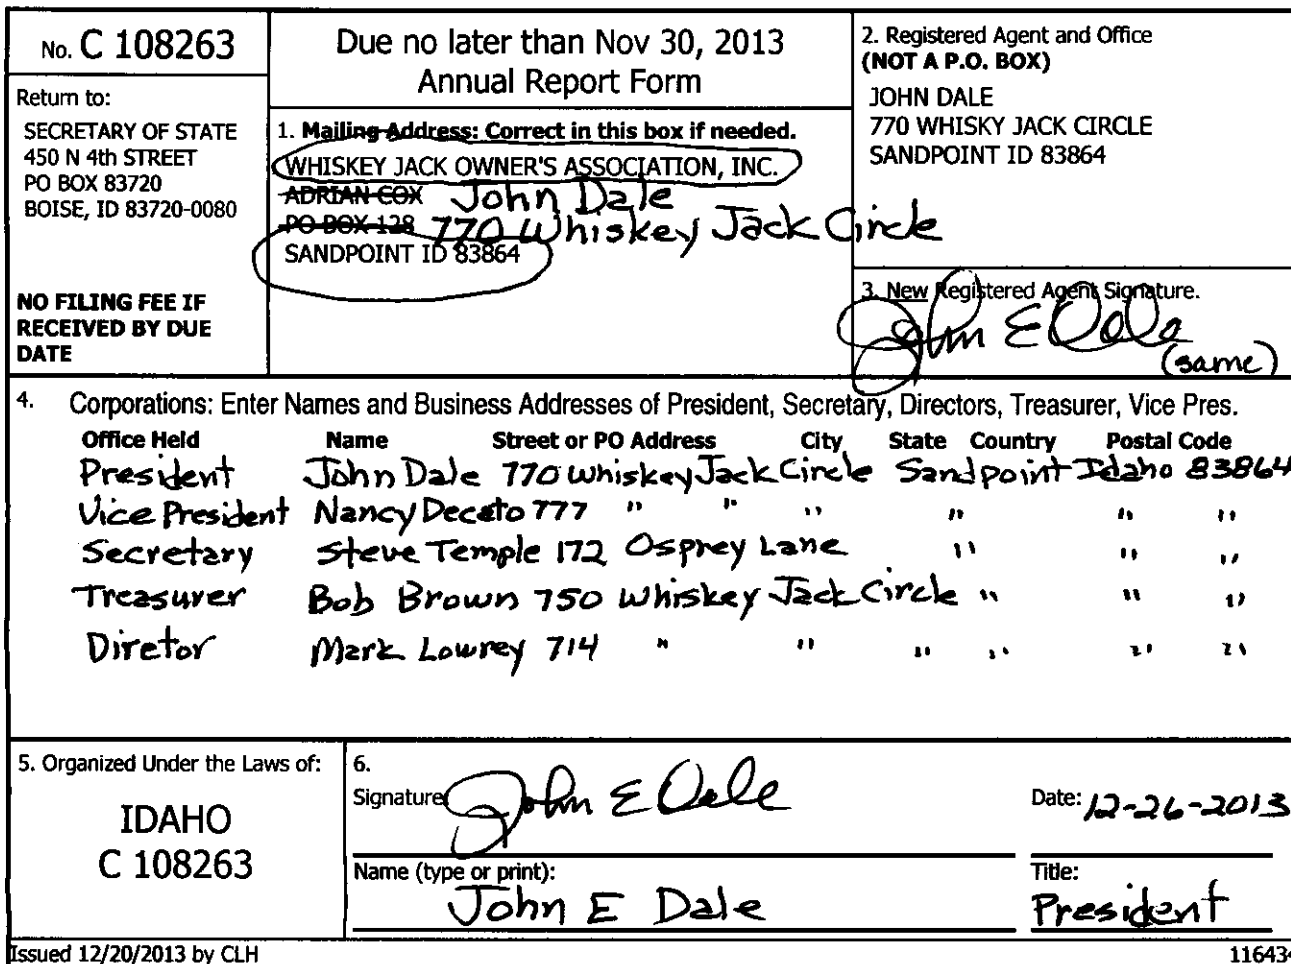 No. C 108263
Return to:
SECRETARY OF STATE
450 N 4th STREET
PO BOX 83720
BOISE, ID 83720-0080
NO FILING FEE IF
RECEIVED BY DUE
DATE
Due no later than Nov 30, 2013
Annual Report Form
1. Mailing Address: Correct in this box if needed.
WHISKEY JACK OWNER'S ASSOCIATION, INC.
ADRIAN COX John Dale
PO BOX 128 770 Whiskey Jack Circle
SANDPOINT ID 83864
2. Registered Agent and Office
(NOT A P.O. BOX)
JOHN DALE
770 WHISKY JACK CIRCLE
SANDPOINT ID 83864
3. New Registered Agent Signature.
John E Dale
(same)
4. Corporations: Enter Names and Business Addresses of President, Secretary, Directors, Treasurer, Vice Pres.
Office Held Name Street or PO Address City State Country Postal Code
President John Dale 770 Whiskey Jack Circle Sandpoint Idaho 83864
Vice President Nancy Decato 777 " " " " " "
Secretary Steve Temple 172 Osprey Lane " " "
Treasurer Bob Brown 750 Whiskey Jack Circle " " "
Diretor Mark Lowrey 714 " " " " " "
5. Organized Under the Laws of:
IDAHO
C 108263
6.
Signature John E Dale
Date: 12-26-2013
Name (type or print):
John E Dale
Title:
President
Issued 12/20/2013 by CLH
116434